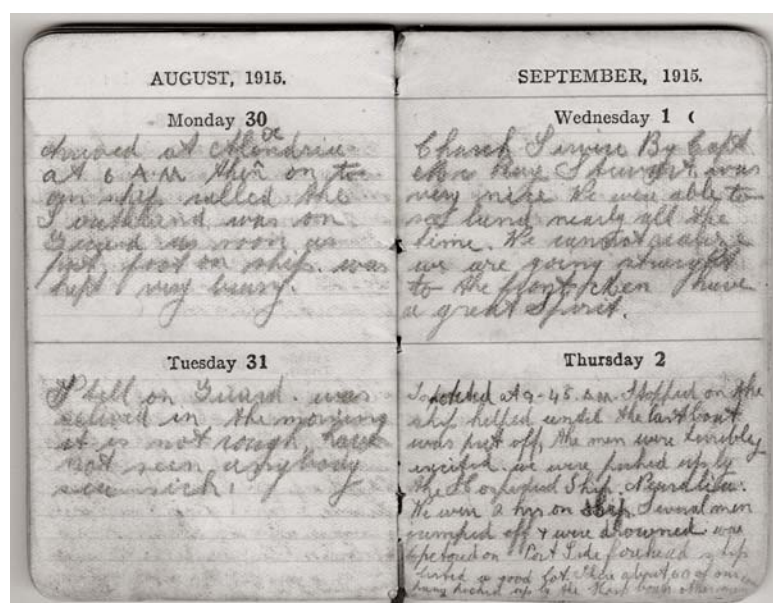 AUGUST, 1915.
Monday 30
Arrived at Alexandria
at 6 AM then on to
our ship called the
Southland was on
Guard as soon as
put foot on ship. was
kept very busy.
Tuesday 31
Still on Guard. was
relived in the morning
it is not rough, have
not seen anybody
sea sick.
SEPTEMBER, 1915.
Wednesday 1
Church Service By Capt
was
very nice We were able to
see land nearly all the
time. We cannot realize
we are going straight
to the front Men have
a great Spirit.
Thursday 2
at 9-45. AM. Stopped on the
ship helped until the last boat
was put off, the men were terribly
excited. we were picked up by
the Hospital Ship Neuralia.
We were 2 hrs on ship. Several men
jumped off & were drowned was
on Port Side forehead ship
listed a good lot. There about 60 of our
picked up by the Hosp boat